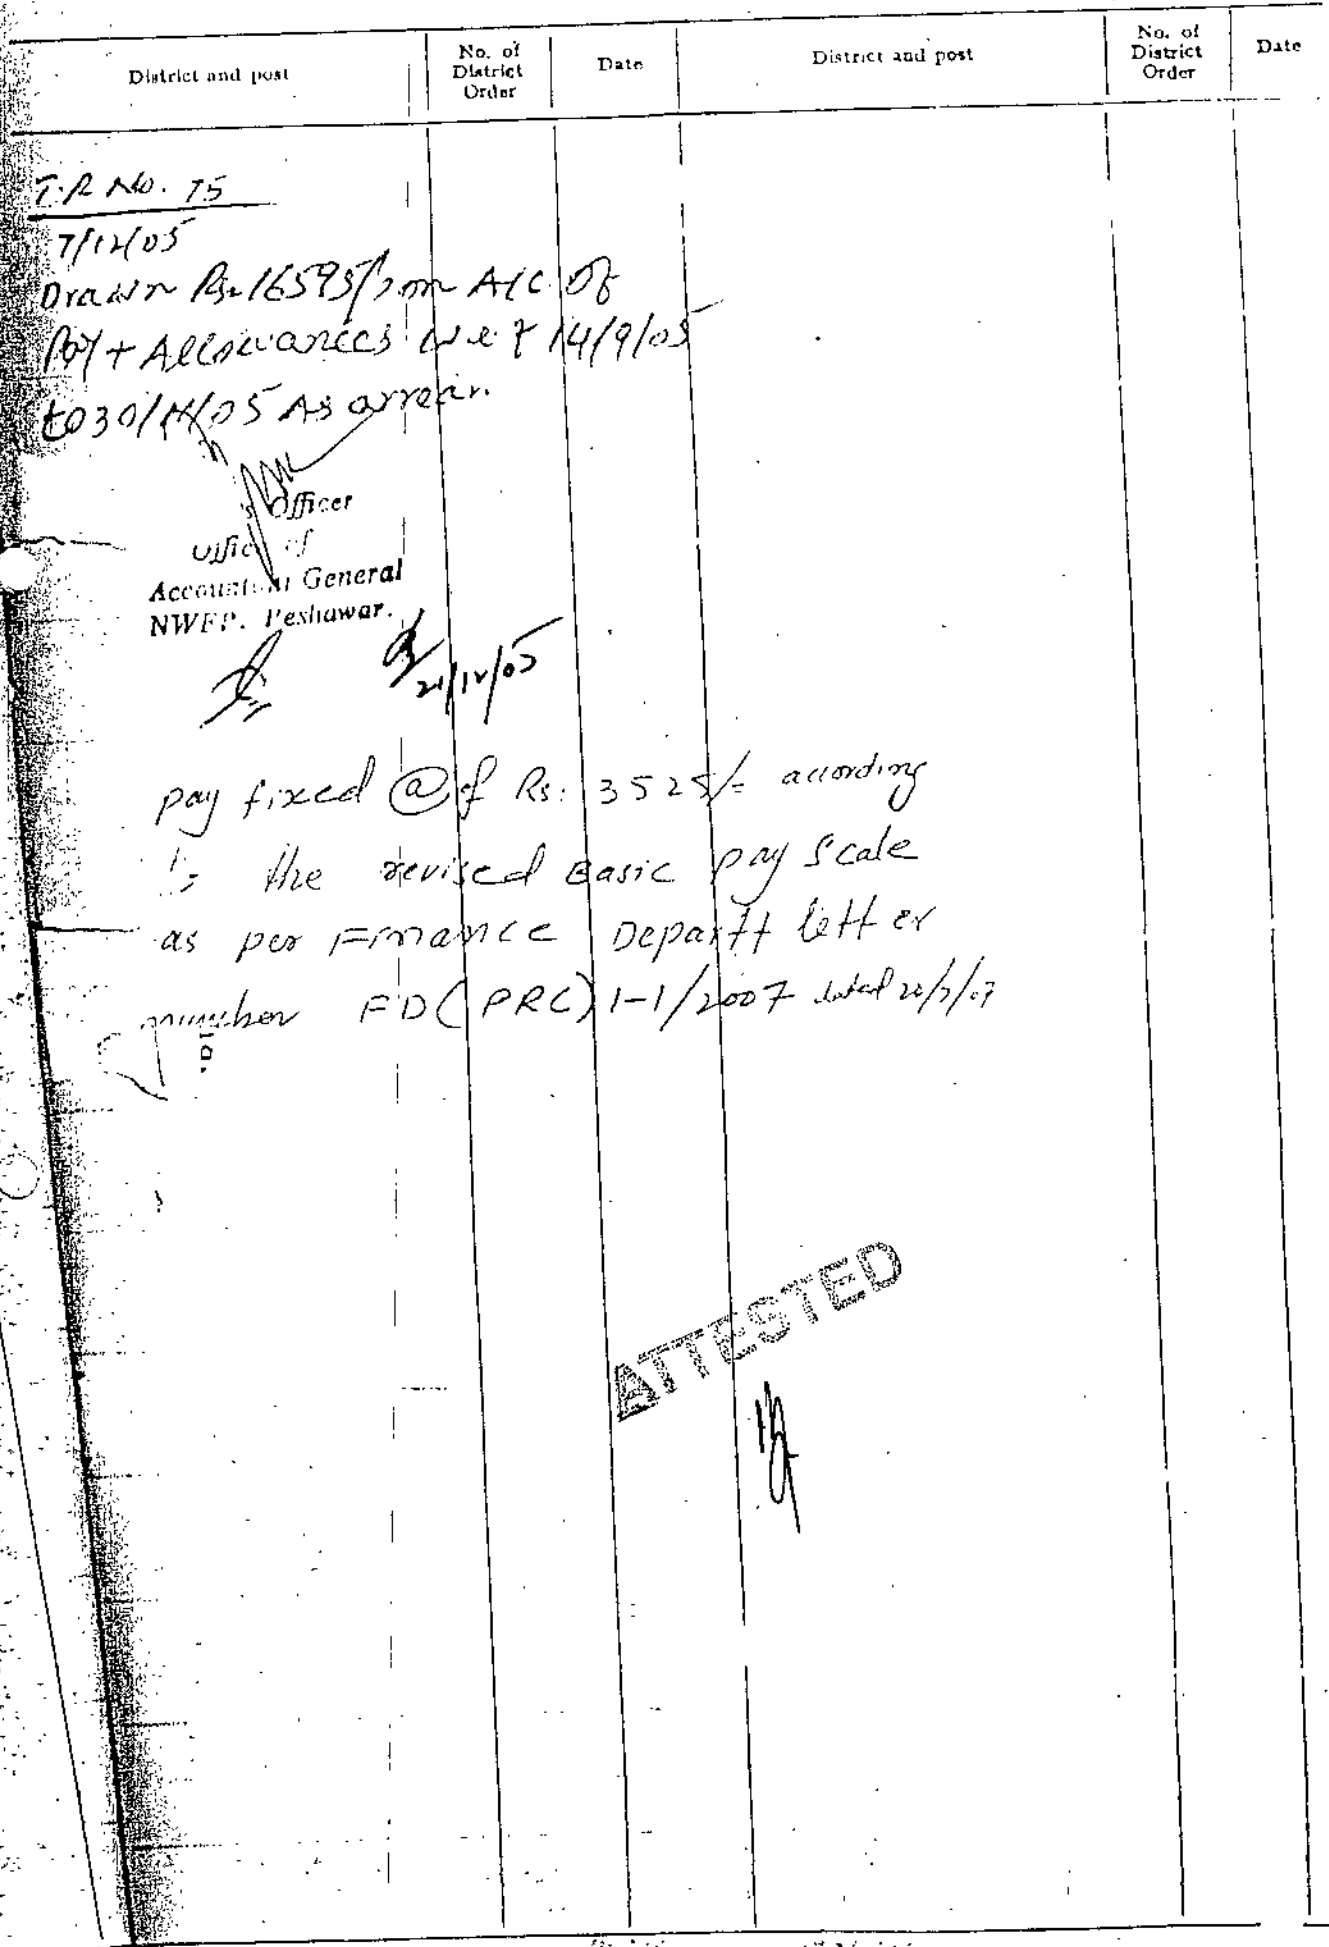 District and post
No. of
District
Order
Date
District and post
No. of
District
Order
Date
T.R No. 75
7/12/05
Drawn Rs. 16595/- on A/C Of
Pay + Allowances w.e.f 14/9/05
to 30/11/05 As arrear.
Officer
Office of
Accountant General
NWFP. Peshawar.
21/12/05
pay fixed @ of Rs: 3525/= according
to the revised Basic pay Scale
as per Finance Departt letter
number FD(PRC) 1-1/2007 dated 20/7/07
ATTESTED